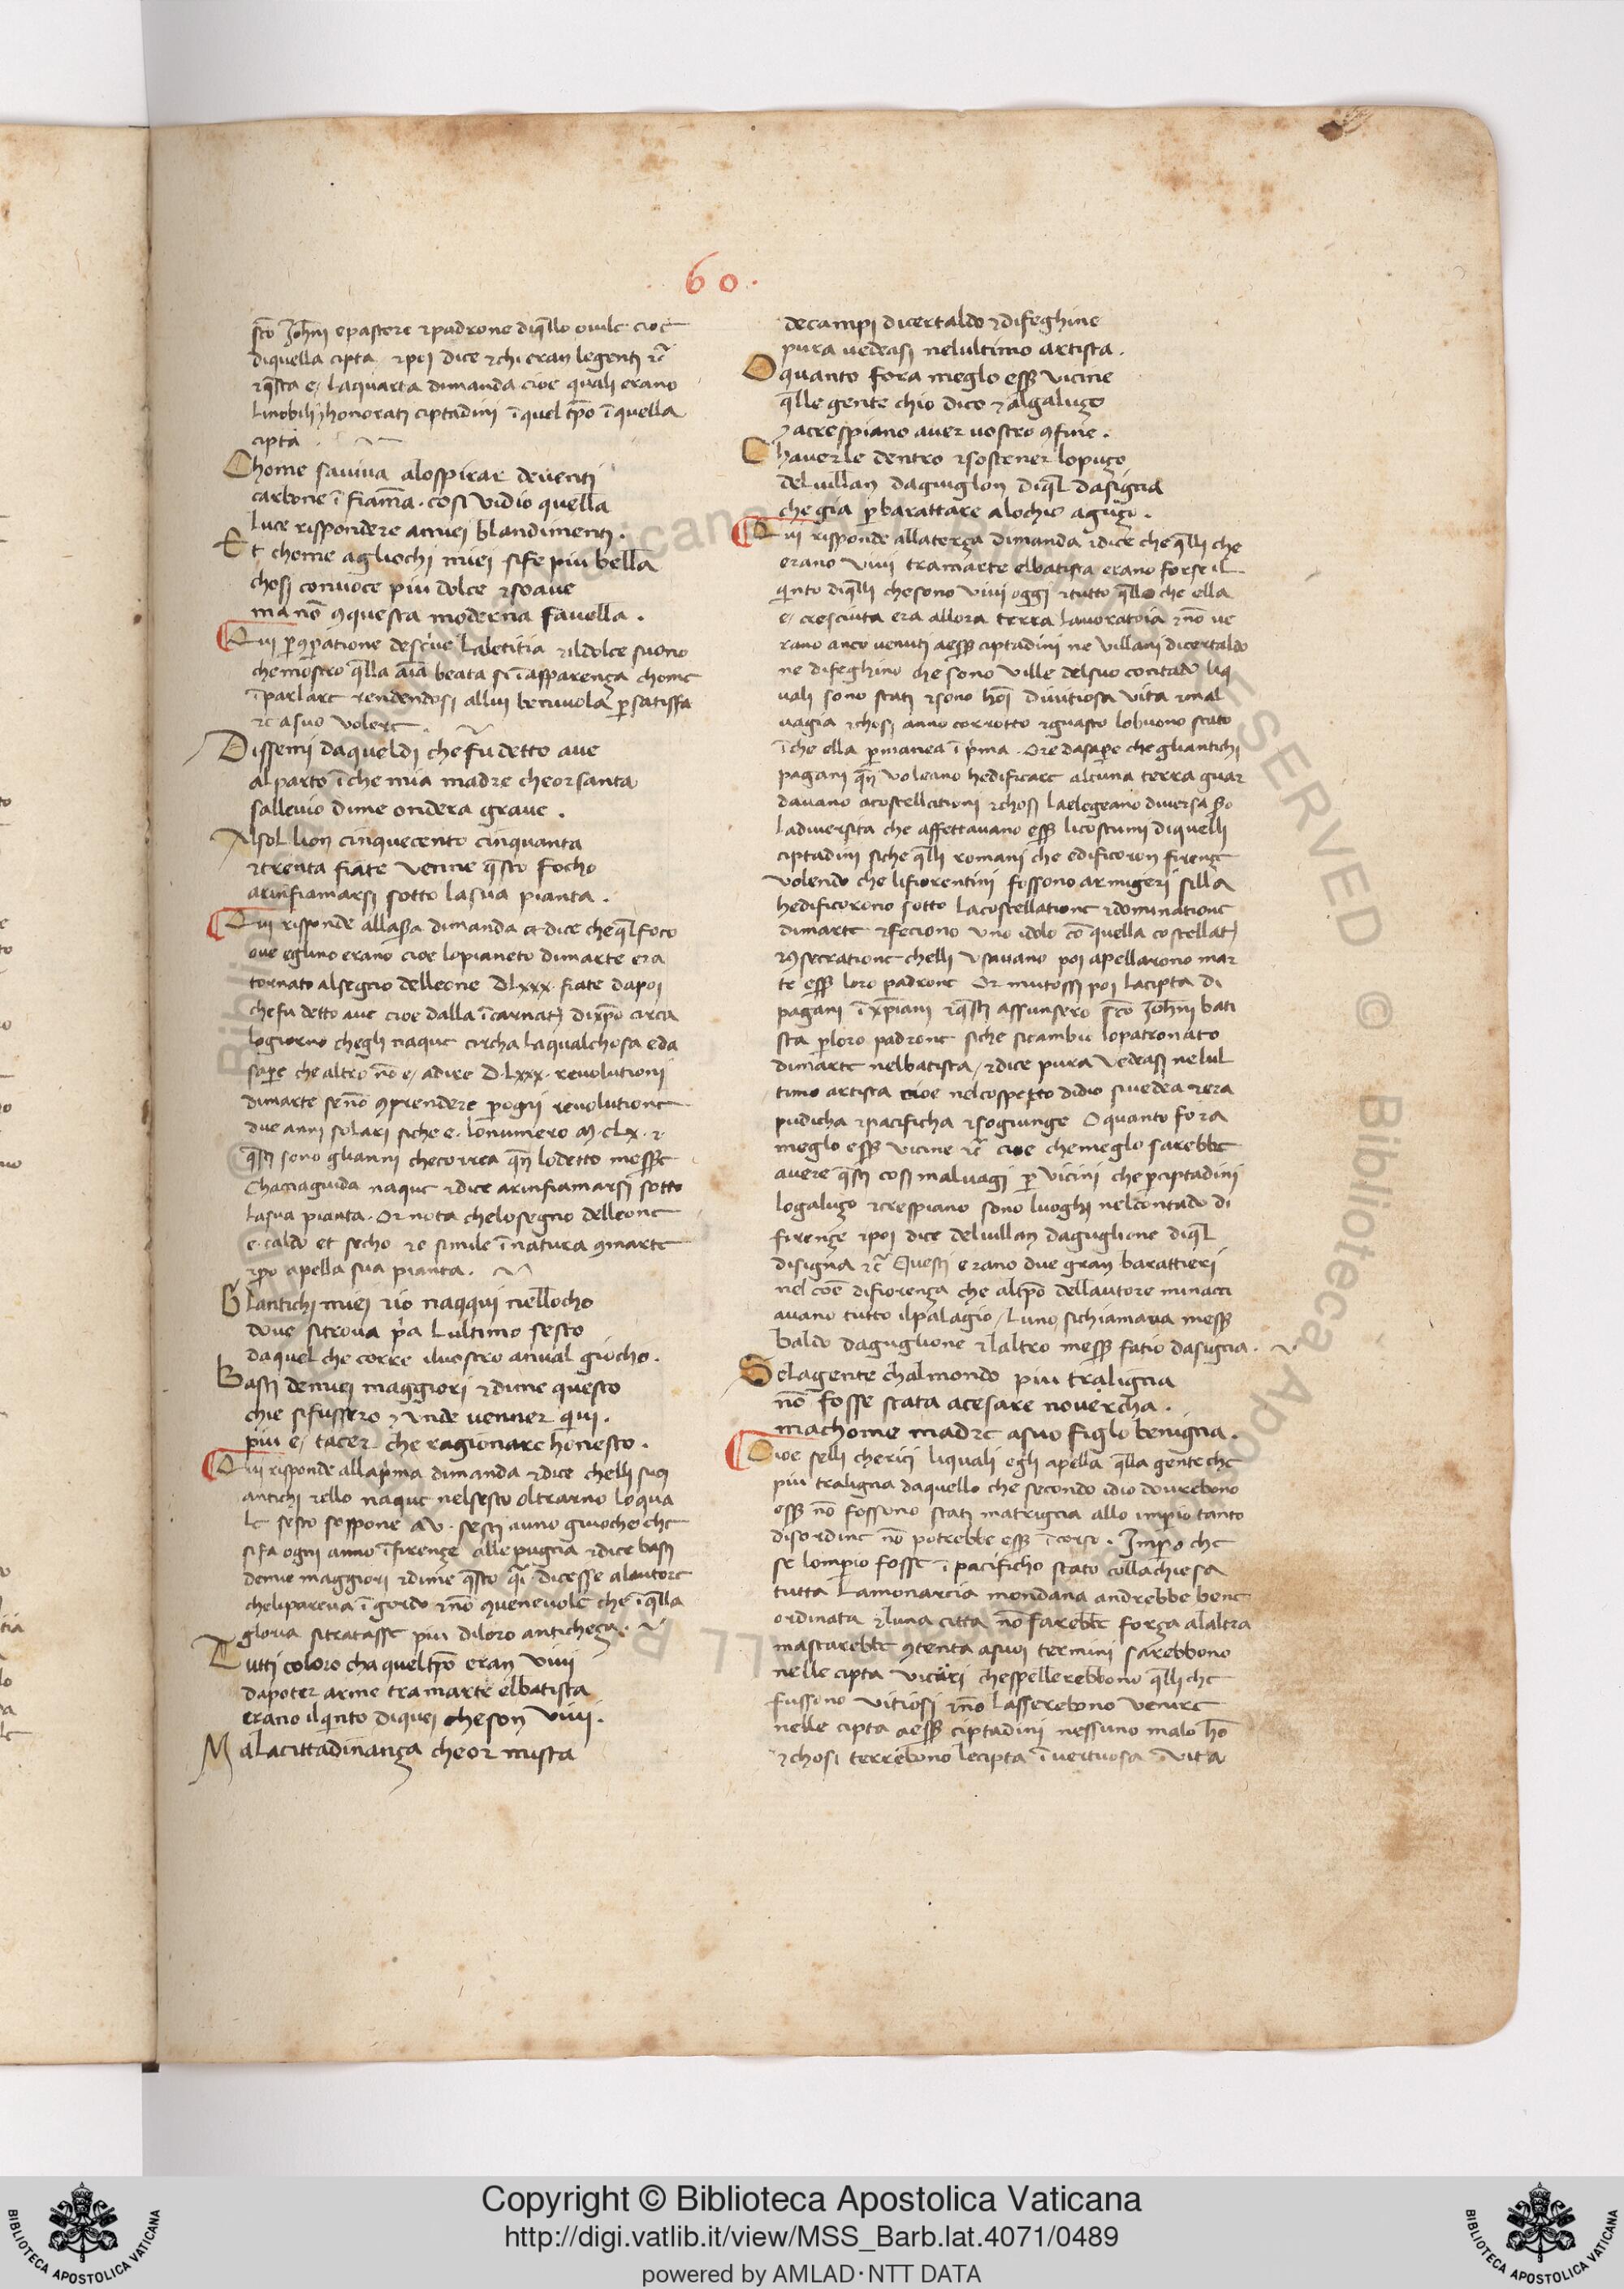 60.
sc̄o Joh̄ni epastore ⁊padrone diq̄llo ouile cioe
diquella cipta ⁊poi dice ⁊chi eran legenti ⁊c̄
⁊q̄sta e/ laquarta dimanda cioe quali erano
linobili ⁊honorati ciptadini ī quel tp̄o ī quella
cipta
Chome sauiua alospirar deuenti
carbone ī fiam̄a. cosi vidio quella
luce rispondere amiei blandimenti.
Et chome agliochi miei sife piu bella
chosi conuoce piu dolce ⁊soaue
ma nō ꝯquesta moderna fauella.
Qui ꝑꝯꝑatione descriue laletitia ⁊ildolce suono
chemostro q̄lla aīa beata si ī apparença chome
ī parlare rendendosi allui beniuola ꝑ satisfa
re asuo volere.
Dissemi daqueldi che fu detto aue
alparto ī che mia madre cheor santa
salleuio dime ondera graue.
Alsol lion cinquecento cinquanta
⁊trenta fiate venne q̄sto focho
arinfiamarsi sotto lasua pianta.
Qui risponde alla dimanda et dice cheq̄l foco
oue eglino erano cioe lopianeto dimarte era
tornato alsegno delleone DLxxx. fiate dapoi
chefu detto aue cioe dalla ī carnat̄ dixp̄o circa
logiorno chegli naque circha laqualchosa eda
saꝑe che altro nō e/ adire D.Lxxx. reuolutioni
dimarte senō ꝯprendere ꝑogni reuolutione
due anni solari siche e. lonumero M.CLx. ⁊
q̄sti sono glianni checorrea qn̄ lodetto messer
Chacciaguida naque ⁊dice arinfiamarsi sotto
lasua pianta. Or nota chelosegno delleone
e. caldo et secho ⁊e simile ī natura ꝯmarte
⁊ꝑo apella sua pianta.
Glantichi miei ⁊io nacqui nellocho
doue sitroua pͥa lultimo sesto
daquel che corre iluostro anual giocho.
Basti demiei maggiori ⁊dirne questo
chie sifussero ⁊ vnde uenner qui.
piu e/ tacer che ragionare honesto.
Qui risponde alla pͥma dimanda ⁊dice chelli suoi
antichi ⁊ello naque nelsesto oltrarno loqua
le sesto soppone aV. sesti auno giuocho che
sifa ogni anno ī firençe alle pugna ⁊dice basti
demie maggiori ⁊dirne q̄sto qͣi dicesse alautore
cheliparena ī gordo ⁊nō ꝯueneuole che ī q̄lla
gloria sitratasse piu diloro anticheça.
Tutti coloro cha queltp̄o eran viui
dapoter arme tra marte elbatista
erano ilqͥnto diquei cheson viui.
Ma lacittadinança cheor mista
decampi dicertaldo ⁊difeghine
pura uedeasi nelultimo artista.
O quanto fora meglo esser vicine
q̄lle gente chio dico ⁊ algaluço
⁊acrespiano auer uostro ꝯfine.
Chauerle dentro ⁊sostener lopuço
deluillan daguiglon diq̄l dasigna
che gia ꝑbarattare alochio aguço.
Qui risponde allaterça dimanda ⁊dice che q̄lli che
erano viui tramarte elbatista erano forse il
qͥnto diq̄lli chesono viui oggi ⁊tutto q̄llo che ella
e/ cresciuta era allora terra lauoratoia ⁊nō ue
rano anco uenuti aesser ciptadini ne villani dicertaldo
ne difeghino che sono ville delsuo contado liq
uali sono stati ⁊sono hoī diuitiosa vita ⁊mal
uagia ⁊chosi anno corrotto ⁊guasto lobuono stato
ī che ella ꝑmanea ī pͥma. Ore dasaꝑe che gliantichi
pagani qn̄ voleano hedificare alcuna terra guar
dauano acostellationi ⁊chosi laelegeano diuersa ꝑo
ladiuersita che affettauano esser licostumi diquelli
ciptadini siche q̄lli romani che edificoron firençe
volendo che lifiorentini fossono armigeri silla
hedificorono sotto lacostellatione ⁊dominatione
dimarte ⁊feciono uno idolo cō quella costellat̄
⁊ꝯsecratione chelli vsauano poi apellarono mar
te esser loro padrone Or mutossi poi lacipta di
pagani ī xp̄iani ⁊q̄sti assunsero sc̄o Joh̄ni bati
sta ꝑloro padrone siche sicambio lopatronato
dimarte nelbatista/ ⁊dice pura vedeasi nelul
timo artista cioe nelcospetto didio siuedea ⁊era
pudicha ⁊pacificha ⁊sogiunge O quanto fora
meglo esser vicine ⁊c̄ cioe chemeglo sarebbe
auere q̄sti cosi maluagi ꝑ vicini che ꝑciptadini
logaluço ⁊crespiano sono luoghi nelcontado di
firençe ⁊poi dice deluillan daguglione diq̄l
disigna ⁊c̄ Questi erano due gran barattieri
nel coē difiorença che altp̄o dellautore
auano tutto ilpalagio/ luno sichiamaua messer
baldo daguglione ⁊laltro messer fatio dasigna.
Selagente chalmondo piu traligna
nō fosse stata acesare nouercha.
machome madre asuo figlo benigna.
Cioe selli cherici liquali egli apella q̄lla gente che
piu traligna daquello che secondo idio dourebono
esser nō fossono stati matrigna allo imꝑio tanto
disordine nō potrebbe esser ī corso. Imꝑo che
se lomꝑio fosse ī pacificho stato collachiesa
tutta lamonarcia mondana andrebbe bene
ordinata ⁊luna citta nō farebbe força alaltra
mastarebbe ꝯtenta asuoi termini sarebbono
nelle cipta vicari chespellerebbono q̄lli che
fussono vitiosi ⁊nō lasserebono venire
nelle cipta aesser ciptadini nessuno malo hō
⁊chosi terrebono lecipta ī vertuosa vita
Copyright © Biblioteca Apostolica Vaticana
http://digi.vatlib.it/view/MSS_Barb.lat.4071/0489
powered by AMLAD·NTT DATA
BIBLIOTECA APOSTOLICA VATICANA
BIBLIOTECA APOSTOLICA VATICANA